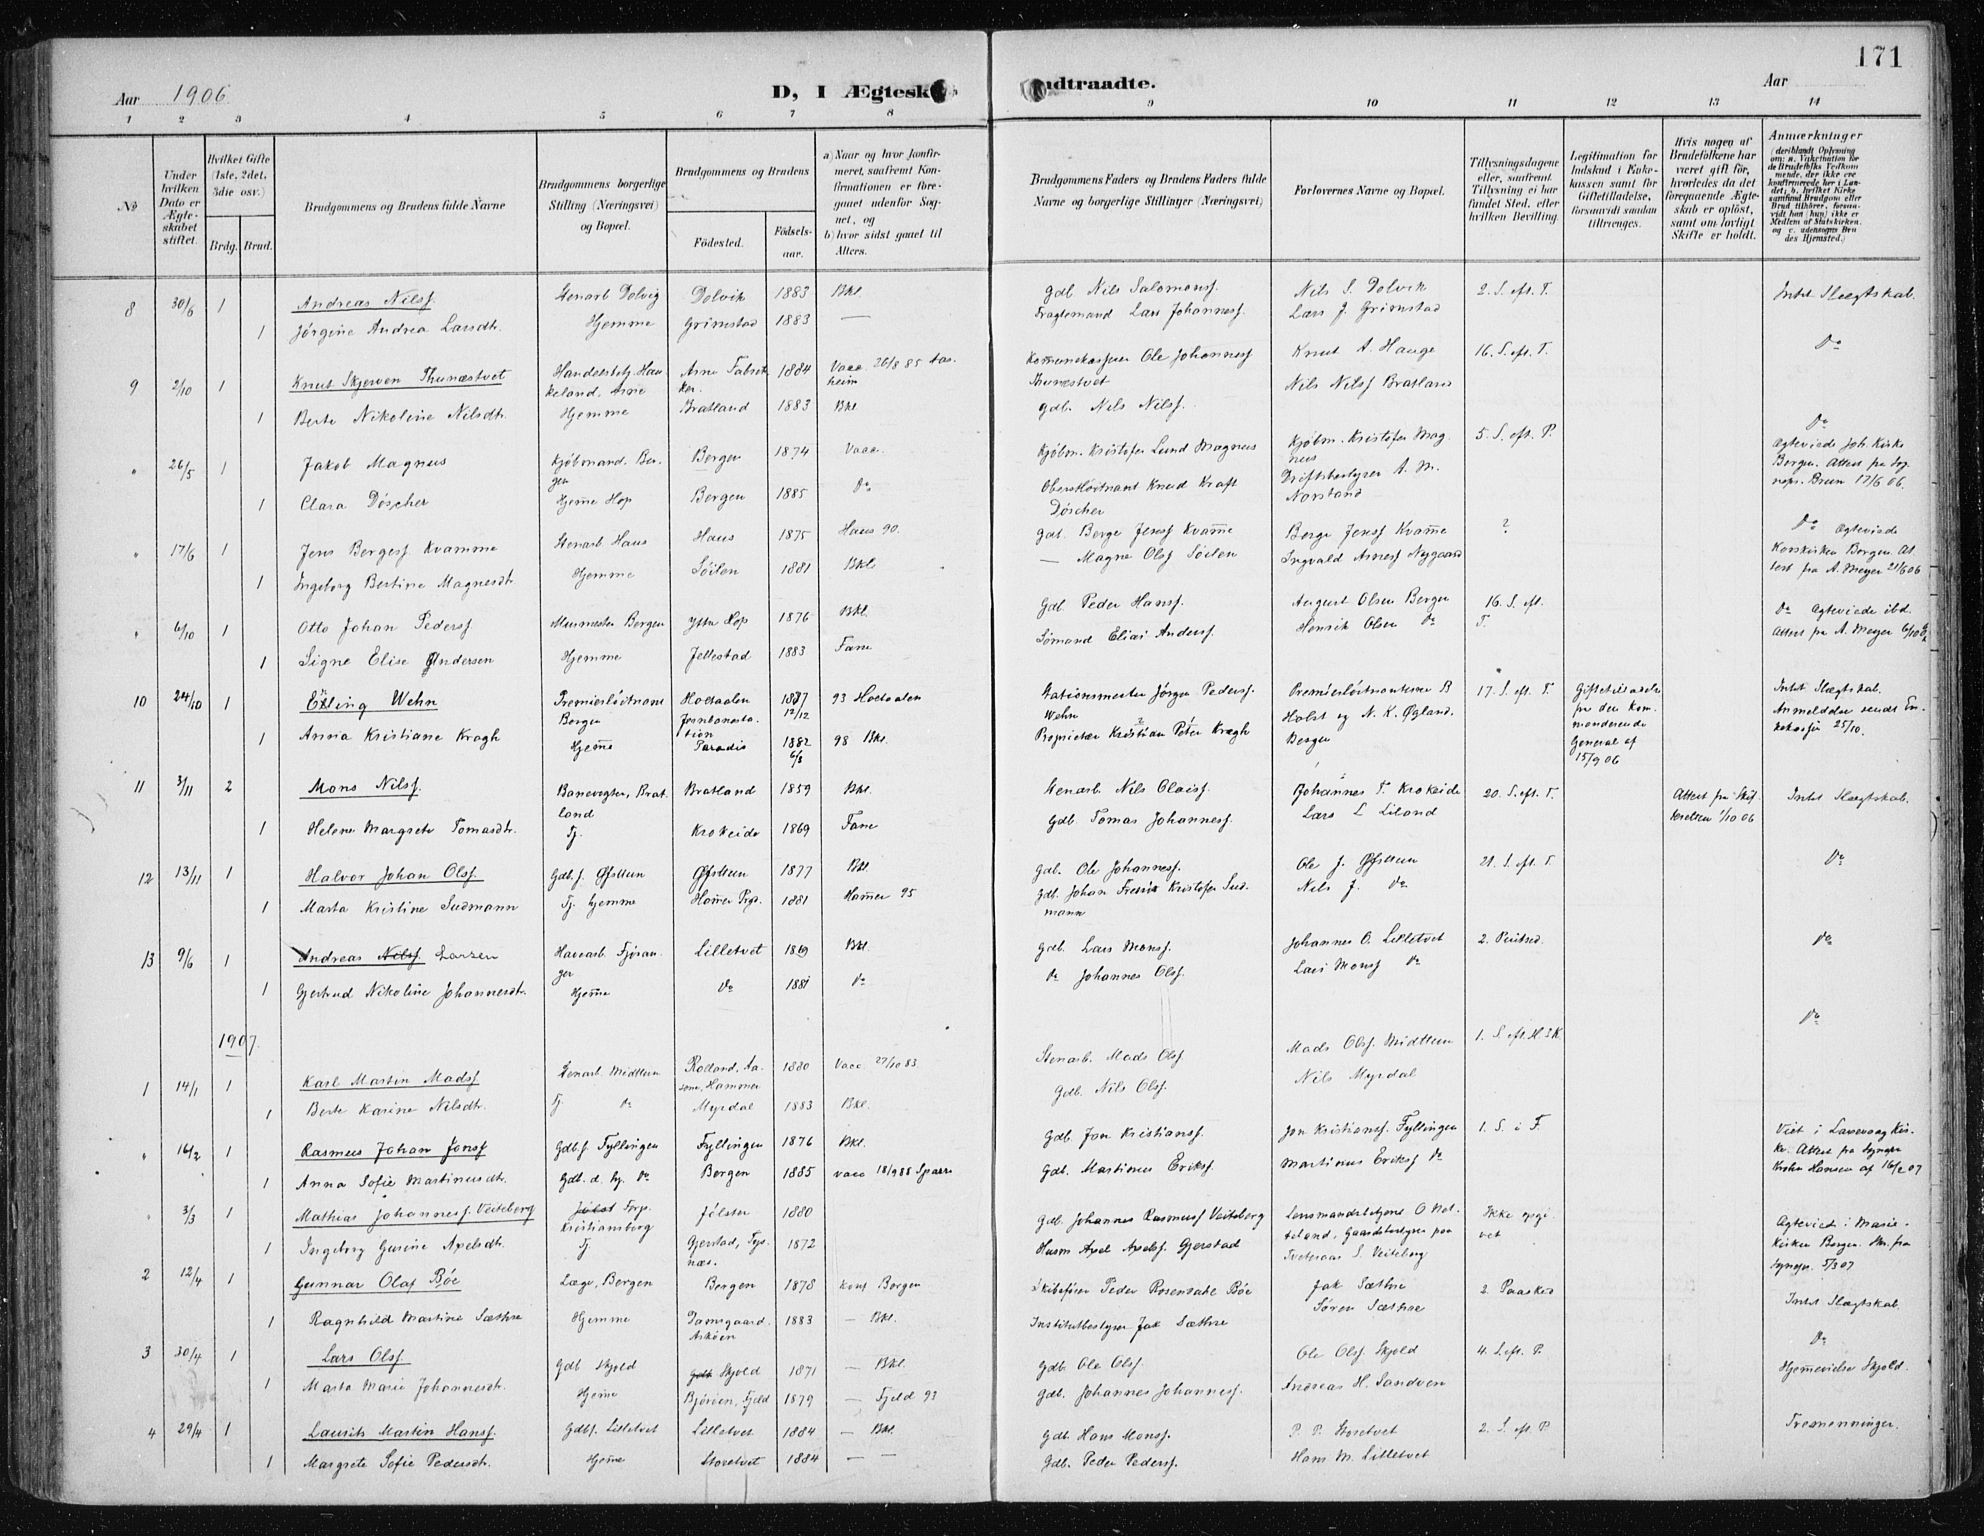 171
Aar 1906
D, I Ægtesk
ndtraadte.
Aar
1 2 3 4 5 6 7 8 9 10 11 12 13 14
No
Under hvilken Dato er Ægteskabet stiftet.
Hvilket Gifte (1ste, 2det, 3die osv.)
Brdg. Brud.
Brudgommens og Brudens fulde Navne
Brudgommens borgerlige Stilling (Næringsvei) og Bopæl.
Brudgommens og Brudens
Fødested.
Fødselsaar.
a) Naar og hvor konfirmeret, saafremt Konfirmationen er foregaaet udenfor Sognet, og
b) hvor sidst gaaet til Alters.
Brudgommens Faders og Brudens Faders fulde Navne og borgerlige Stillinger (Næringsvei)
Forlovernes Navne og Bopæl.
Tillysningsdagene eller, saafremt Tillysning ei har fundet Sted, efter hvilken Bevilling.
Legitimation for Indskud i Enkekassen samt for Giftetilladelse, forsaavidt saadan tiltrænges.
Hvis nogen af Brudefolkene har været gift før, hvorledes da det foregaaende Ægteskab er opløst, samt om lovligt Skifte er holdt.
Anmærkninger
8 30/6 1 Andreas Nilsf. Stenarb Dolvig Dolvik 1883 Bkl. Gdb Nils Salomonsf. Nils S. Dolvik 2. S. eft. T. Intet Slægtskab.
1 Jørgine Andrea Larsdtr. Hjemme Grimstad 1883 — Fragtemand Lars Johannesf. Lars J. Grimstad
9 2/10 1 Knut Skjerven Thunæstvet Handelsbetj. Haukeland, Arne Arne Fabrikker. 1884 Vacc. 26/8 85 Aasheim Komunekasserer Ole Johannesf Thunæstvet Knut A. Hauge 16. S. eft. T. Do
1 Berte Nikoline Nilsdtr. Hjemme Bratland 1883 Bkl. Gdb. Nils Nilsf. Nils Nilsf Bratland
" 26/5 1 Jakob Magnus Kjøbmand. Bergen Bergen 1874 Vacc. Kjøbm. Kristofer Lund Magnus Kjøbm. Kristofer Magnus 5. S. eft. P. Do Ægteviede Joh. Kirke Bergen. Attest fra Sognepr. Bruun 17/6 06.
1 Clara Döscher Hjemme Hop Bergen 1885 Do Oberstløitnant Knud Kraft Döscher Driftsbestyrer A. M. Norstand
" 17/6 1 Jens Bergesf. Kvamme Stenarb. Haus Haus 1875 Haus 90. Gdb. Berge Jensf Kvamme Berge Jensf Kvamme ? Do Ægteviede Korskirken Bergen. Attest fra A. Meyer 21/6 06
1 Ingeborg Bertine Magnesdtr. Hjemme Söilen 1881 Bkl. — Magne Olsf Söilen Ingvald Arnesf Nygaard
" 6/10 1 Otto Johan Pedersf Murmester Bergen Ytre Hop 1876 Bkl. Gdb Peder Hansf. August Olsen Bergen 16. S. eft. T. Do Ægteviede ibd. Attest fra A. Meyer 6/10 06
1 Signe Elise Andersen Hjemme Jellestad 1883 Fane Sömand Elias Andersf. Henrik Olsen Do
10 24/10 1 Erling Wehn Premierlöitnant Bergen Holtaalen Jernbanestation 1877 12/12 93 Holtaalen Stationsmester Jörgen Pedersf. Wehn Premierløitnanterne B Holst og N. K. Øgland. Bergen 17. S. eft. T. Giftetilladelse fra den kommanderende General af 15/9 06 Intet Slægtskab. Anmeldelse sendt Enkekassen 25/10.
1 Anna Kristiane Kragh Hjemme Paradis 1882 6/8 98 Bkl. Proprietær Kristian Peter Kragh
11 3/11 2 Mons Nilsf. Banevogter, Bratland Bratland 1859 Bkl. Stenarb Nils Olaisf. Johannes T. Krokeide 20. S. eft. T. Attest fra Skifteretten /10 06 Intet Slægtskab.
1 Helene Margrete Tomasdtr. Tj. Krokeide 1869 Fane Gdb. Tomas Johannesf. Lars L Liland
12 13/11 1 Halvor Johan Olsf. Gdb. f. Øfsttun Øfsttun 1877 Bkl. Gdb. Ole Johannesf. Ole J. Øfsttun 21. S. eft. T. Do
1 Marta Kristine Sudmann Tj. hjemme Hamer Pgd. 1881 Hamer 95 Gdb. Johan Fredrik Kristofer Sudmann Nils J. Do
13 9/6 1 Andreas Nilsf. Larsen Havearb. Fjøsanger Lilletvet 1869 Bkl. Gdb. Lars Monsf. Johannes O. Lilletvet 2. Pintsed. Do
1 Gjertrud Nikoline Johannesdtr. Hjemme Do 1881 Do Do Johannes Olsf. Lars Monsf Do
1907.
1 14/1 1 Karl Martin Madsf Stenarb Midttun Rolland, Aasene, Hammer 1880 Vacc 27/10 83 Stenarb. Mads Olsf Mads Olsf. Midttun 1. S. eft. H3K. Do
1 Berte Karine Nilsdtr. Tj. Do Myrdal 1883 Bkl. Gdb. Nils Olsf. Nils Myrdal
" 16/2 1 Rasmus Johan Jonsf Gdb. f Fyllingen Fyllingen 1876 Bkl. Gdb. Jon Kristiansf. Jon Kristiansf. Fyllingen 1. S. i F. Viet i Laxevaag Kirke. Attest fra Sognepr Krohn Hansen af 16/2 07
1 Anna Sofie Martinusdtr. Gdb. d. hj. Do Bergen 1885 vacc 18/9 88 Gdb. Martinus Eriksf. Martinus Eriksf Do
" 3/3 1 Mathias Johannesf. Veiteberg Jølst Kristiansborg Jölster 1880 Gdb. Johannes Rasmusf Veiteberg Lensmandsbetjent O. Natteland, Gaardsbestyrer paa Tveteraas S. Veiteberg Ikke opgivet Ægteviede i Mariekirken Bergen. fra Sognepr. 5/3 07
1 Ingeborg Gurine Axelsdtr. Tj. Gjerstad, Tysnæs. 1872 Husm Axel Axelsf. Gjerstad
2 12/4 1 Gunnar Olaf Böe Læge, Bergen Bergen 1878 konf Bergen Skibsfører Peder Rosendahl Böe Jak Sæthre 2 Paasked Intet Slægtskab.
1 Ragnhild Martine Sæthre Hjemme Damsgaard. Askøen 1883 — Bkl. Institutbestyrer Jak Sæthre Sören Sæthre
3 30/4 1 Lars Olsf. Gdb Skjold Skjold 1871 — Bkl. Gdb. Ole Olsf. Ole Olsf Skjold 4. S. eft. P. Do Hjemmevielse Skjold.
1 Marta Marie Johannesdtr. Hjemme Björöen, Fjeld 1879 — Fjeld 93 Gdb. Johannes Johannesf. Andreas H. Sandven
4 29/4 1 Laurits Martin Hansf. Gdbf. Lilletvet Lilletvet 1884 — Bkl. Gdb. Hans Monsf. P. P. Storetvet 2. S. eft. P. Tremenninger.
1 Margrete Sofie Pedersdtr. Hjemme Storetvet 1884 — Gdb. Peder Pedersf. Hans M. Lilletvet